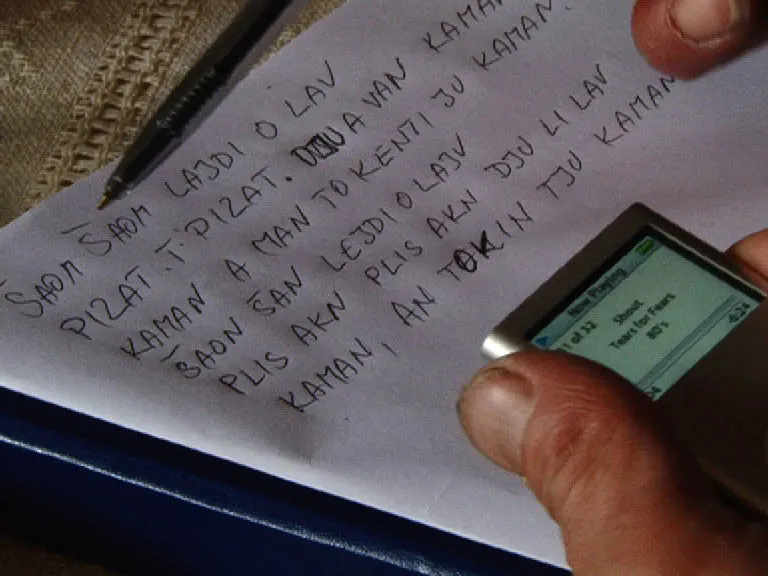 ŠAOM ŠAOM LAJDI O LAV
PIZAT. T PIZAT. DJU A VAN KAMAN
KAMAN A MAN TO KENTI JU KAMAN.
ŠAON ŠAN LEJDI O LAJV
PLIS AKN PLIS AKN DJU LI LAV
KAMAN, AN TOKIN TJU KAMAN
Now Playing
1 of 32
Shout
Tears for Fears
80's
-6:24